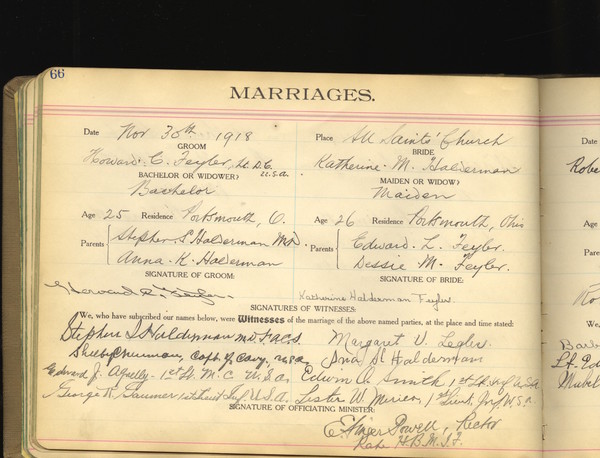 66
MARRIAGES.
Date Nov 30th 1918 Place All Saints' Church
GROOM BRIDE
Howard C. Feyler, Lt. D.C. Katherine M. Halderman
BACHELOR OR WIDOWER? U.S.A. MAIDEN OR WIDOW?
Bachelor Maiden
Age 25 Residence Portsmouth, O. Age 26 Residence Portsmouth, Ohio
Parents Stephen S. Halderman M.D. Parents Edward L. Feyler.
Anna K. Halderman Dessie M. Feyler.
SIGNATURE OF GROOM: SIGNATURE OF BRIDE:
Howard C. Feyler. Katherine Halderman Feyler.
SIGNATURES OF WITNESSES:
We, who have subscribed our names below, were Witnesses of the marriage of the above named parties, at the place and time stated:
Stephen S. Halderman M.D. F.A.C.S. Margaret V. Legler.
Capt. Cavy. U.S.A. Halderman
Edward J. 1st Lt. M.C. U.S.A. Edwin A. Smith, 1st Lt. Inf. U.S.A.
George Inf. U.S.A. Lester W. 1st Lieut. Inf. U.S.A.
SIGNATURE OF OFFICIATING MINISTER:
E. Powell, Rector
Date
Robe
Age
Parents
Ro
Barb
Lt. Ed
Mabel